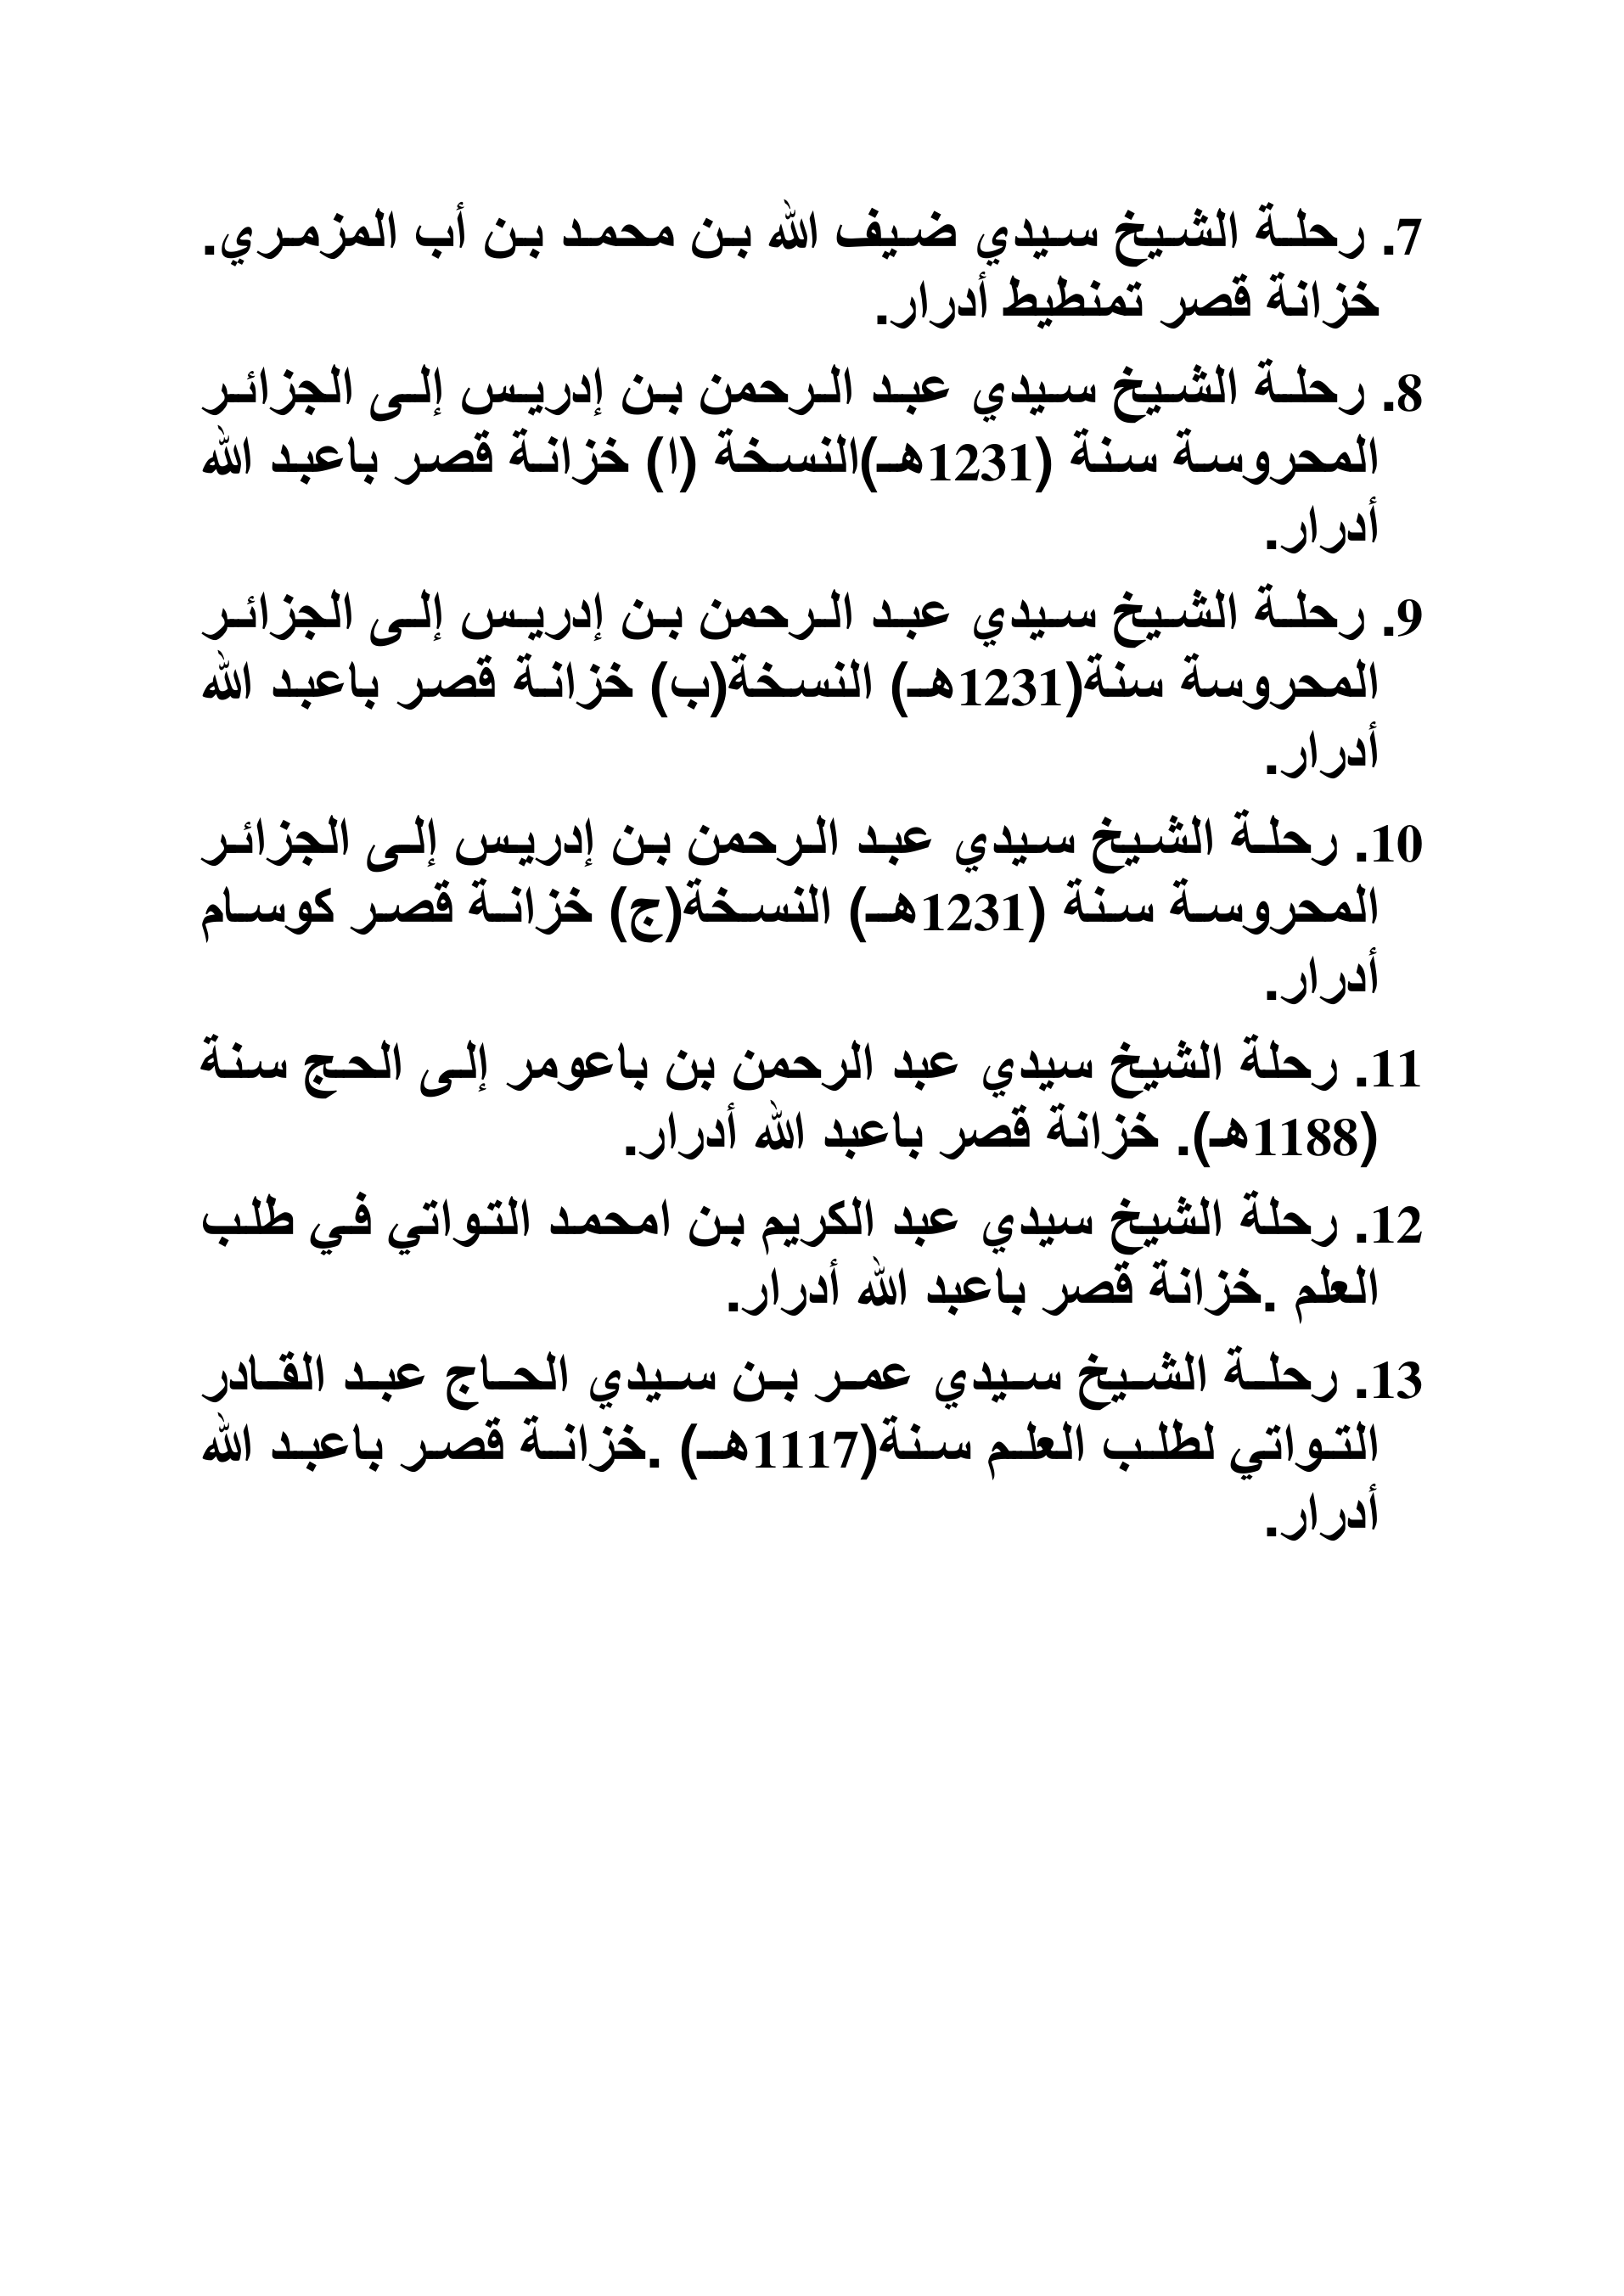 7. رحلة الشيخ سيدي ضيف الله بن محمد بن أب المزمري.
خزانة قصر تمنطيط أدرار.
8. رحلة الشيخ سيدي عبد الرحمن بن إدريس إلى الجزائر
المحروسة سنة (1231هـ)النسخة (ا) خزانة قصر باعبد الله
أدرار.
9. رحلة الشيخ سيدي عبد الرحمن بن إدريس إلى الجزائر
المحروسة سنة(1231هـ) النسخة(ب) خزانة قصر باعبد الله
أدرار.
10. رحلة الشيخ سيدي عبد الرحمن بن إدريس إلى الجزائر
المحروسة سنة (1231هـ) النسخة(ج) خزانة قصر كوسام
أدرار.
11. رحلة الشيخ سيدي عبد الرحمن بن باعومر إلى الحج سنة
(1188هـ). خزانة قصر باعبد الله أدرار.
12. رحلة الشيخ سيدي عبد الكريم بن امحمد التواتي في طلب
العلم .خزانة قصر باعبد الله أدرار.
13. رحلة الشيخ سيدي عمر بن سيدي الحاج عبد القادر
التواتي لطلب العلم سنة(1117هـ) .خزانة قصر باعبد الله
أدرار.